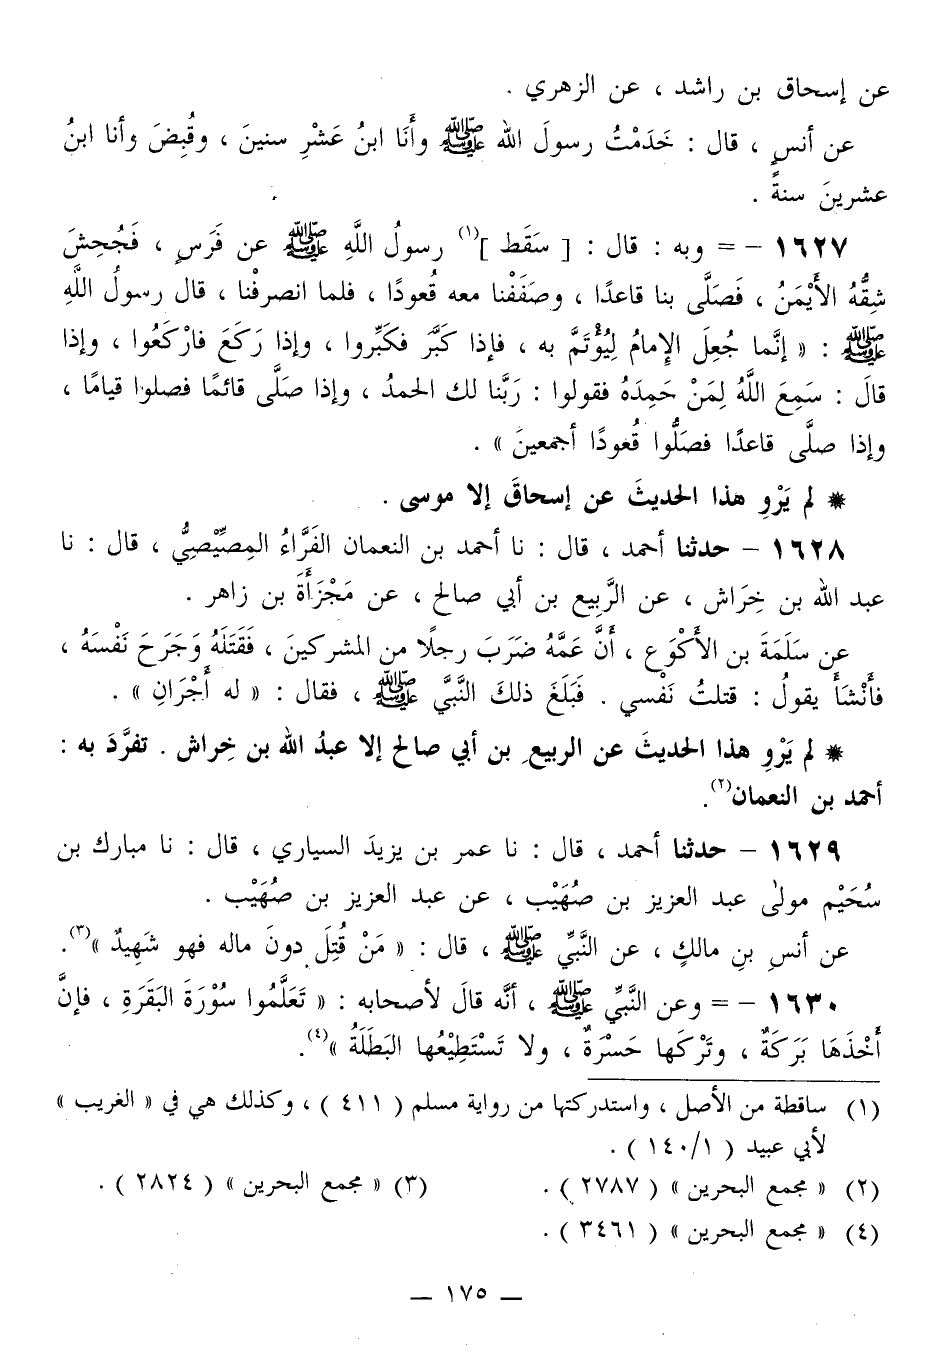 عن إسحاق بن راشد ، عن الزهري .
عن أنسٍ ، قال : خَدَمْتُ رسولَ الله ﷺ وأَنَا ابنُ عَشْرِ سنينَ ، وقُبِضَ وأنا ابنُ
عشرينَ سنةً .
١٦٢٧ – = وبه : قال : [ سَقَط ](١) رسولُ اللَّهِ ﷺ عن فَرَسٍ ، فَجُحِشَ
شِقُّهُ الأَيْمَنُ ، فَصَلَّى بنا قاعدًا ، وصَفَفْنا معه قُعودًا ، فلما انصرفْنا ، قال رسولُ اللَّهِ
ﷺ : « إنَّما جُعِلَ الإمامُ لِيُؤْتَمَّ به ، فإذا كَبَّرَ فكَبِّروا ، وإذا رَكَعَ فارْكَعُوا ، وإذا
قالَ : سَمِعَ اللَّهُ لِمَنْ حَمِدَهُ فقولوا : رَبَّنا لك الحمدُ ، وإذا صَلَّى قائمًا فصلوا قيامًا ،
وإذا صلَّى قاعدًا فصَلُّوا قُعودًا أجمعينَ » .
* لم يَرْوِ هذا الحديثَ عن إسحاقَ إلا موسى .
١٦٢٨ – حدثنا أحمد ، قال : نا أحمد بن النعمان الفَرَّاءُ المِصِّيْصِيُّ ، قال : نا
عبد الله بن خِرَاش ، عن الرَّبِيع بن أبي صالح ، عن مَجْزَأَةَ بن زاهر .
عن سَلَمَةَ بن الأَكْوَع ، أَنَّ عَمَّهُ ضَرَبَ رجلًا من المشركينَ ، فَقَتَلَهُ وَجَرَحَ نَفْسَهُ ،
فأَنْشَأَ يقولُ : قتلتُ نَفْسي . فَبَلَغَ ذلكَ النَّبيَّ ﷺ ، فقال : « له أَجْرَانِ » .
* لم يَرْوِ هذا الحديثَ عن الربيع بن أبي صالح إلا عبدُ الله بن خِراش . تفرَّدَ به :
أحمد بن النعمان(٢).
١٦٢٩ – حدثنا أحمد ، قال : نا عمر بن يزيدَ السياري ، قال : نا مبارك بن
سُحَيْم مولىٰ عبد العزيز بن صُهَيْب ، عن عبد العزيز بن صُهَيْب .
عن أنسِ بنِ مالكٍ ، عن النَّبِّي ﷺ ، قال : « مَنْ قُتِلَ دونَ ماله فهو شَهِيدٌ »(٣).
١٦٣٠ – = وعن النَّبيِّ ﷺ ، أنَّه قالَ لأصحابه : « تَعَلَّمُوا سُوْرَةَ البَقَرَةِ ، فإنَّ
أَخْذَهَا بَرَكَةٌ ، وتَرْكَها حَسْرَةٌ ، ولا تَسْتَطِيْعُها البَطَلَةُ »(٤).
(١) ساقطة من الأصل ، واستدركتها من رواية مسلم ( ٤١١ ) ، وكذلك هي في « الغريب »
لأبي عبيد ( ١/ ١٤٠ ) .
(٢) « مجمع البحرين » ( ٢٧٨٧ ) . (٣) « مجمع البحرين » ( ٢٨٢٤ ) .
(٤) « مجمع البحرين » ( ٣٤٦١ ) .
– ١٧٥ –